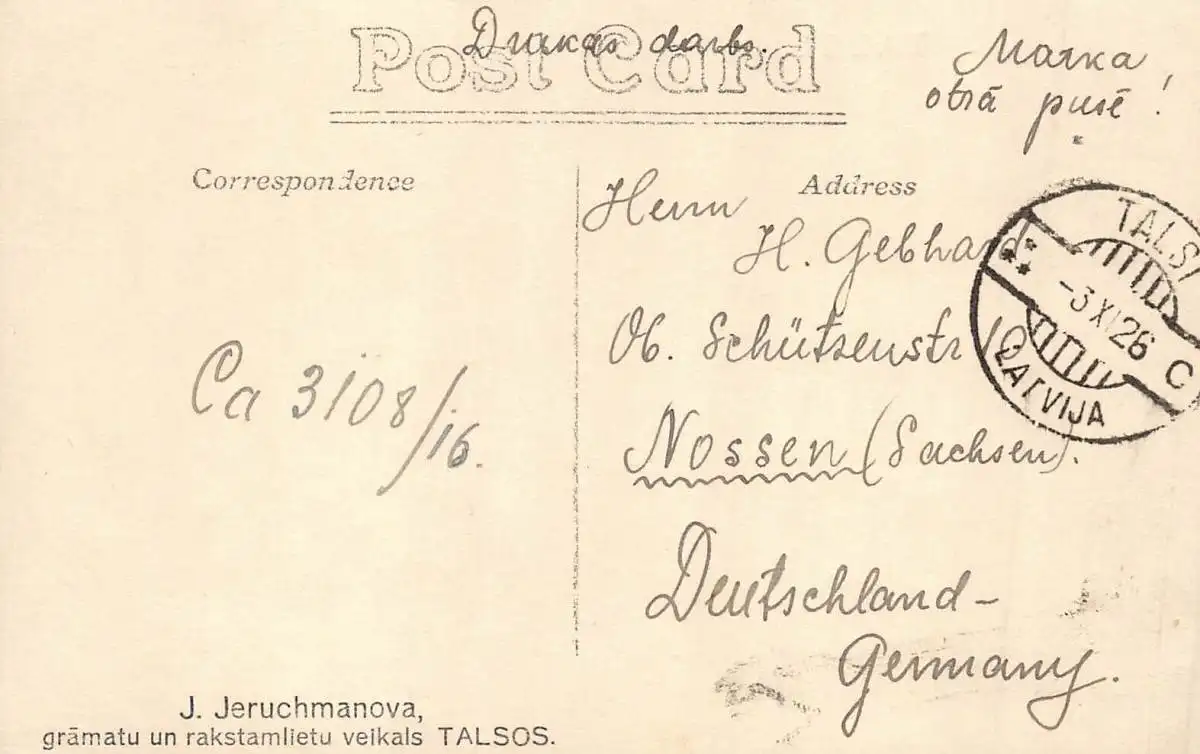 Drukas darbs.
Post Card
Marka
otrā pusē!
Correspondence
Address
Herrn
H. Gebhard
Ob. Schützenstr 10
Nossen (Sachsen).
Deutschland-
Germany.
TALSI
-3 XI 26
C
LATVIJA
Ca 3108/16.
J. Jeruchmanova,
grāmatu un rakstamlietu veikals TALSOS.